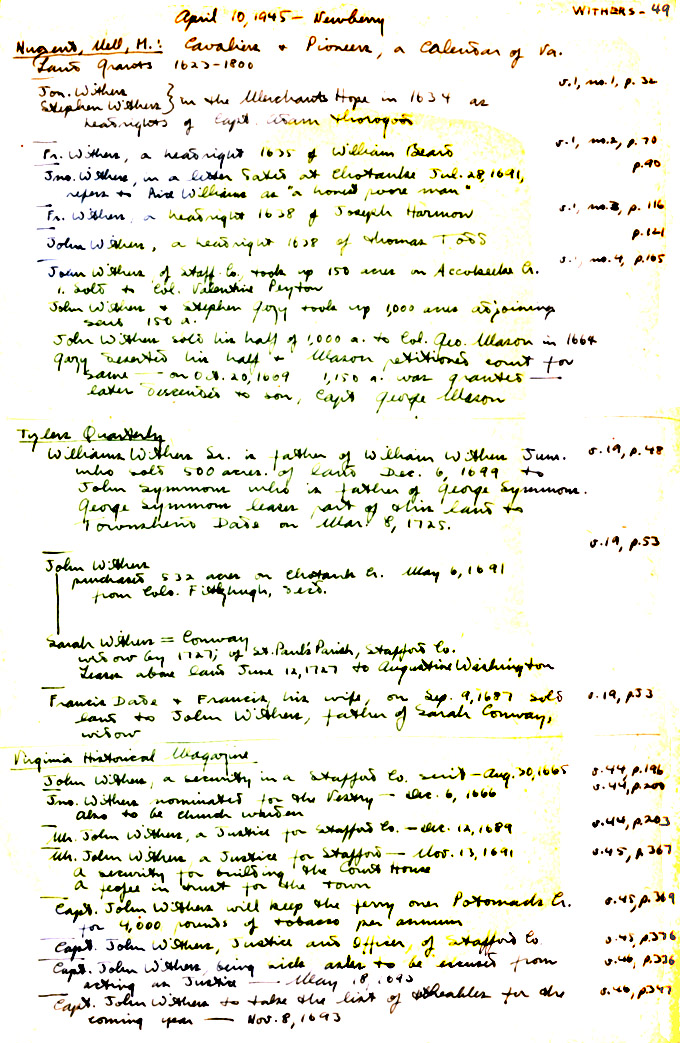 April 10, 1945 - Newberry
WITHERS - 49
Nugent, Nell, M.: Cavaliers & Pioneers, a Calendar of Va.
Land Grants 1623-1800
Jon. Withers
Stephen Withers } in the Merchants Hope in 1634 as v.1, no.1, p. 32
headrights of Capt. Adam Thorogood
Fr. Withers, a headright 1635 of William Beard v.1, no.2, p. 70
Jno. Withers, in a letter dated at Chotanke Jul. 28, 1691, p.90
refers to Rice Williams as "a honest poore man"
Fr. Withers, a headright 1638 of Joseph Harmon v.1, no.3, p. 116
John Withers, a headright 1638 of Thomas Todd p.121
John Withers of Staff. Co. took up 150 acres on Accokeeke Cr. v.1, no.4, p.165
sold to Col. Valentine Peyton
John Withers & Stephen took up 1,000 acres adjoining
said 150 a.
John Withers sold his half of 1,000 a. to Col. Geo. Mason in 1664
deserted his half & Mason petitioned court for
same — on Oct. 20, 1669 1,150 a. was granted —
later descended to son, Capt George Mason
Tylers Quarterly
Williams Withers Sr. is father of William Withers Junr. v.19, p.48
who sold 500 acres. of land Dec. 6, 1699 to
John Symmons who is father of George Symmons.
George Symmons leases part of this land to
Townshend Dade on Mar. 8, 1725.
v.19, p.53
John Withers
purchased 532 acres on Chotank Cr. May 6, 1691
from Colo. Fitzhugh, Decd.
Sarah Withers = Conway
widow by 1727; of St. Paul's Parish, Stafford Co.
Leases above land June 12, 1727 to Augustine Washington
Francis Dade & Francis, his wife, on Sep. 9, 1687 sold v.19, p53
land to John Withers, father of Sarah Conway,
widow
Virginia Historical Magazine
John Withers, a security in a Stafford Co. suit - Aug. 30, 1665 v.44, p.196
Jno. Withers nominated for the Vestry - Dec. 6, 1666 v.44, p.200
also to be church warden
Mr. John Withers, a Justice for Stafford Co. - Dec. 12, 1689 v.44, p.203
Mr. John Withers, a Justice for Stafford - Nov. 13, 1691 v.45, p367
A security for building the Court House
A feofee in trust for the town
Capt. John Withers will keep the ferry over Potomack Cr. v.45, p.369
for 4,000 pounds of tobacco per annum
Capt. John Withers, Justice and Officer, of Stafford Co v.45, p376
Capt. John Withers, being sick asks to be excused from v.46, p.336
acting as Justice — May 18, 1693
Capt. John Withers to take the list of titheables for the v.46, p347
coming year — Nov. 8, 1693